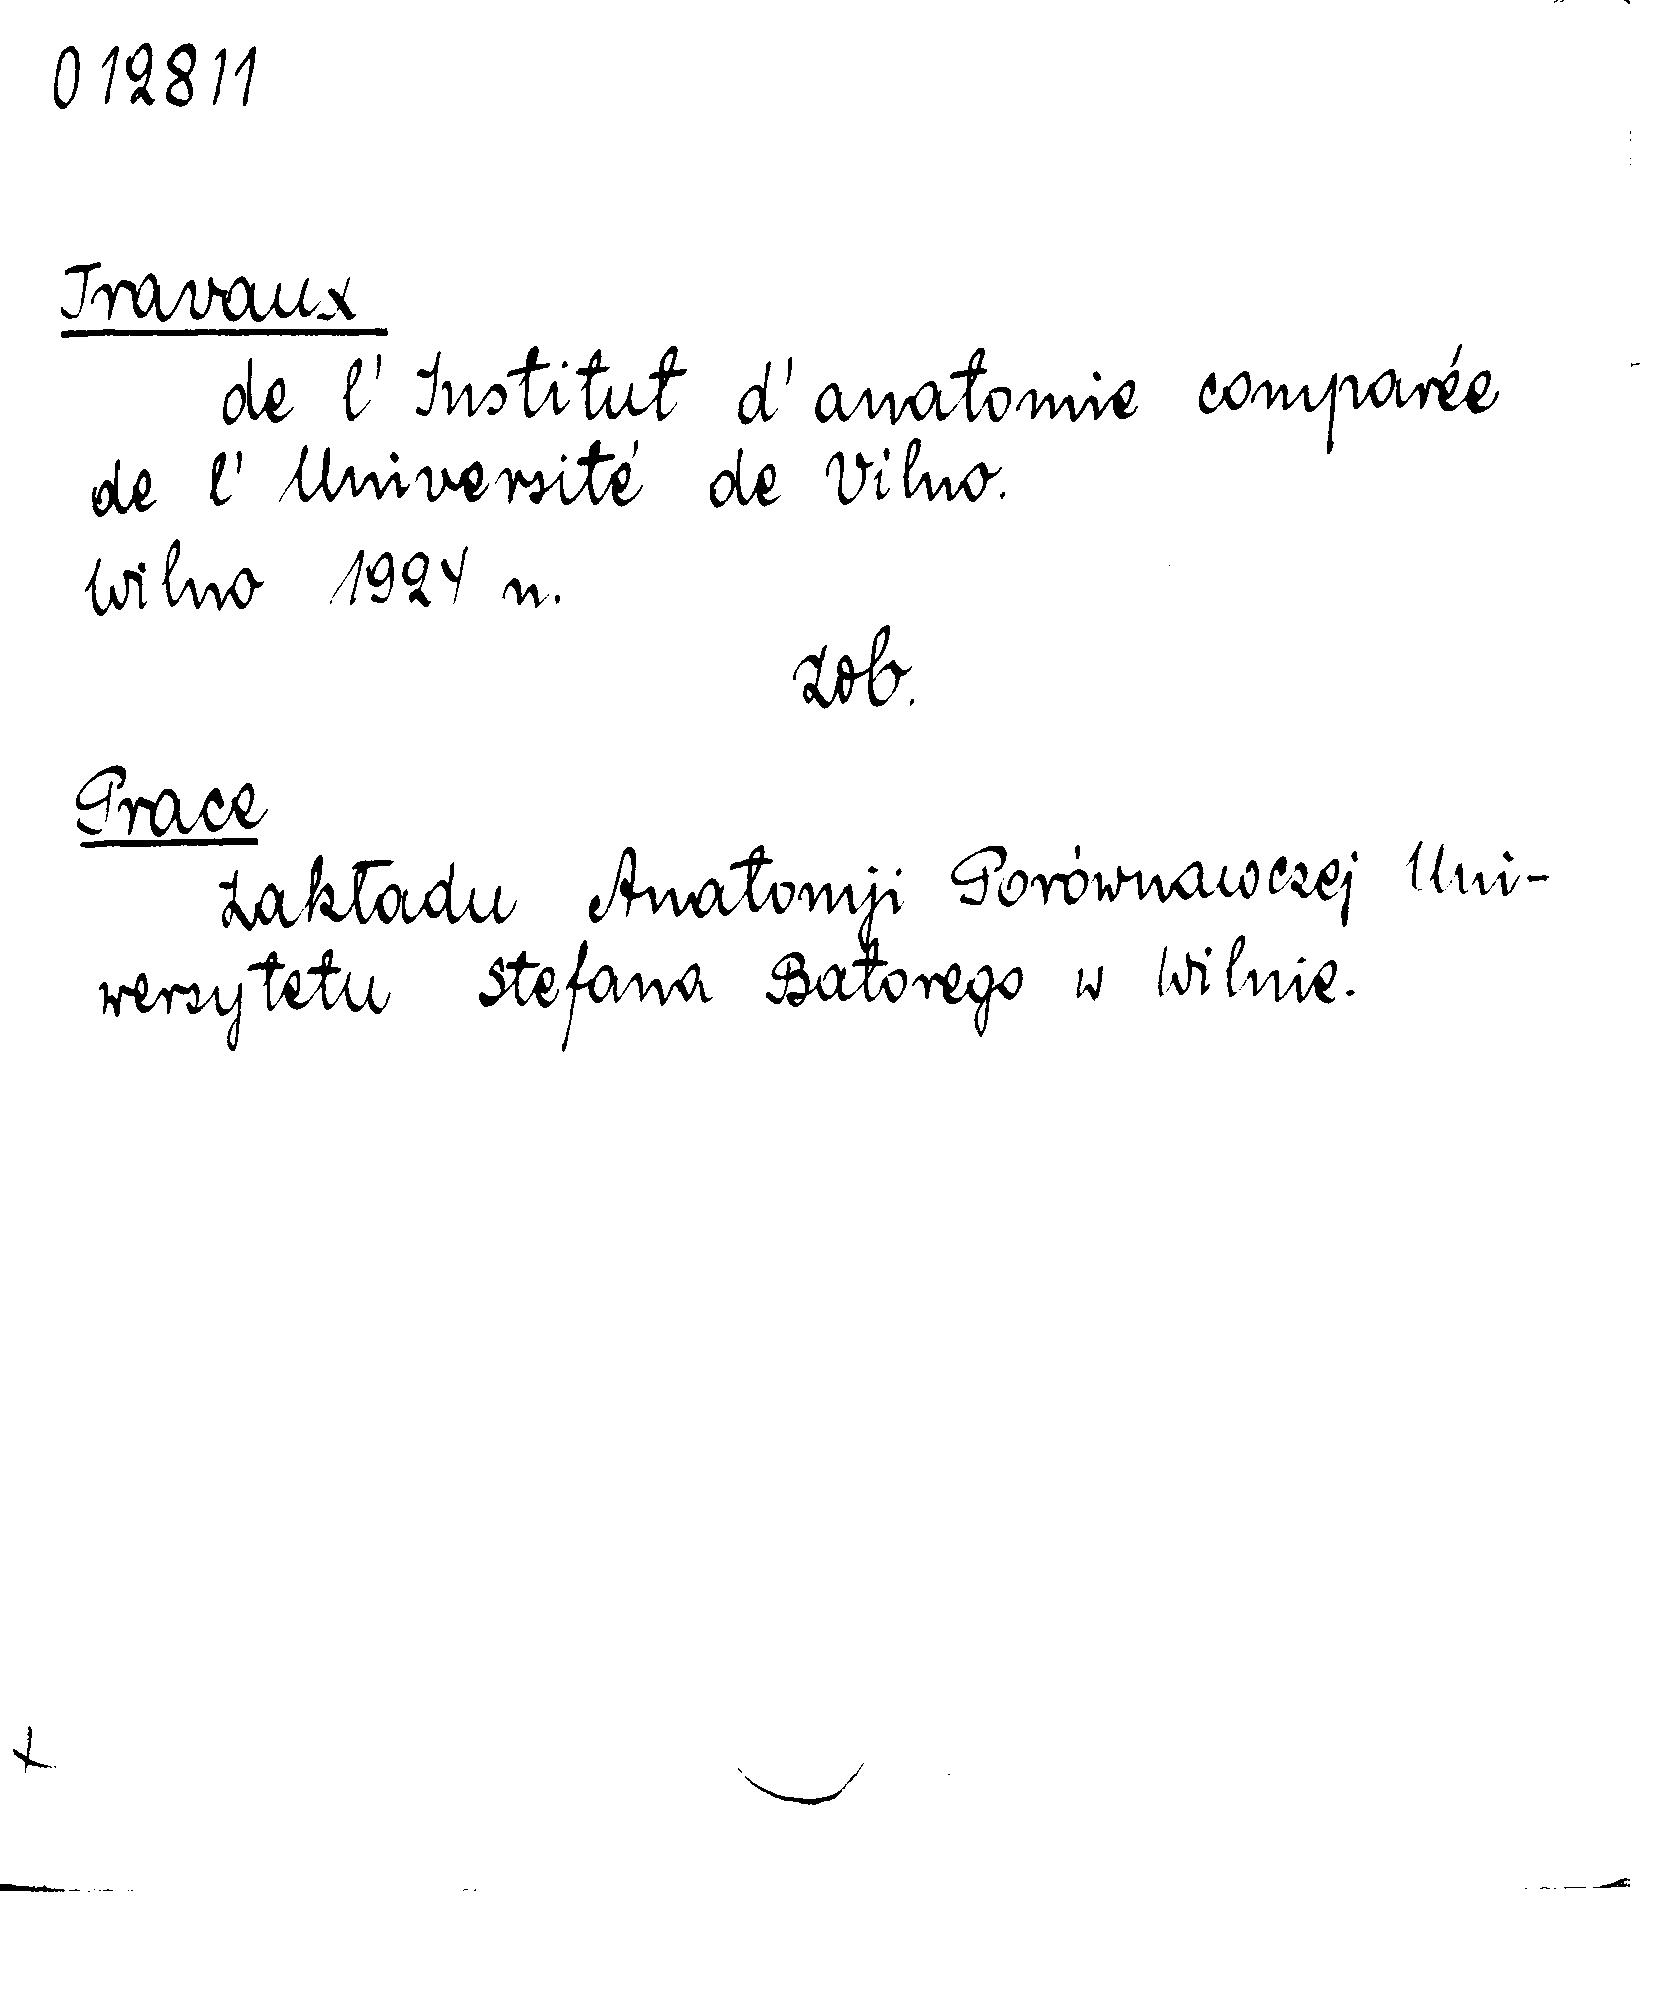 012811
Travaux
de l'Institut d'anatomie comparée
de l'Université de Vilno.
Wilno 1924 n.
Zob.
Prace
Zakładu Anatomji Porównawczej Uni-
wersytetu Stefana Batorego w Wilnie.